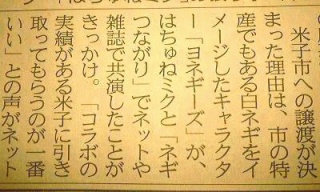 米子市への譲渡が決
まった理由は、市の特
産でもある白ネギをイ
メージしたキャラクタ
ー「ヨネギーズ」が、
はちゅねミクと「ネギ
つながり」でネットや
雑誌で共演したことが
きっかけ。「コラボの
実績がある米子に引き
取ってもらうのが一番
いい」との声がネット